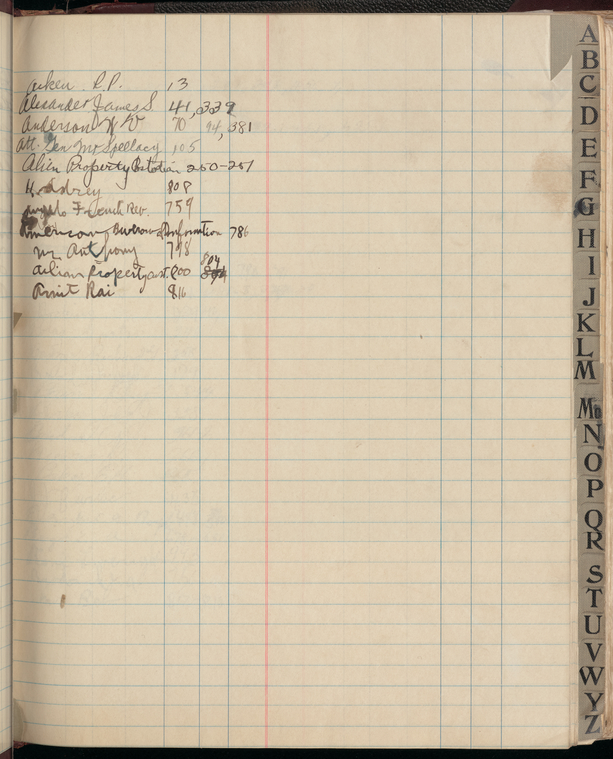 Aiken R.P. 13
Alexander James S 41, 339
Anderson W W 70 94, 381
Att. Gen Mr Spellacy 105
Alien Property 250-251
808
French Rev. 759
American Bureau of Information 786
Mr Anthony 798
804
Alien Property cust. 800
Amit Rai 816
A
B
C
D
E
F
G
H
I
J
K
L
M
Mc
N
O
P
Q
R
S
T
U
V
W
Y
Z